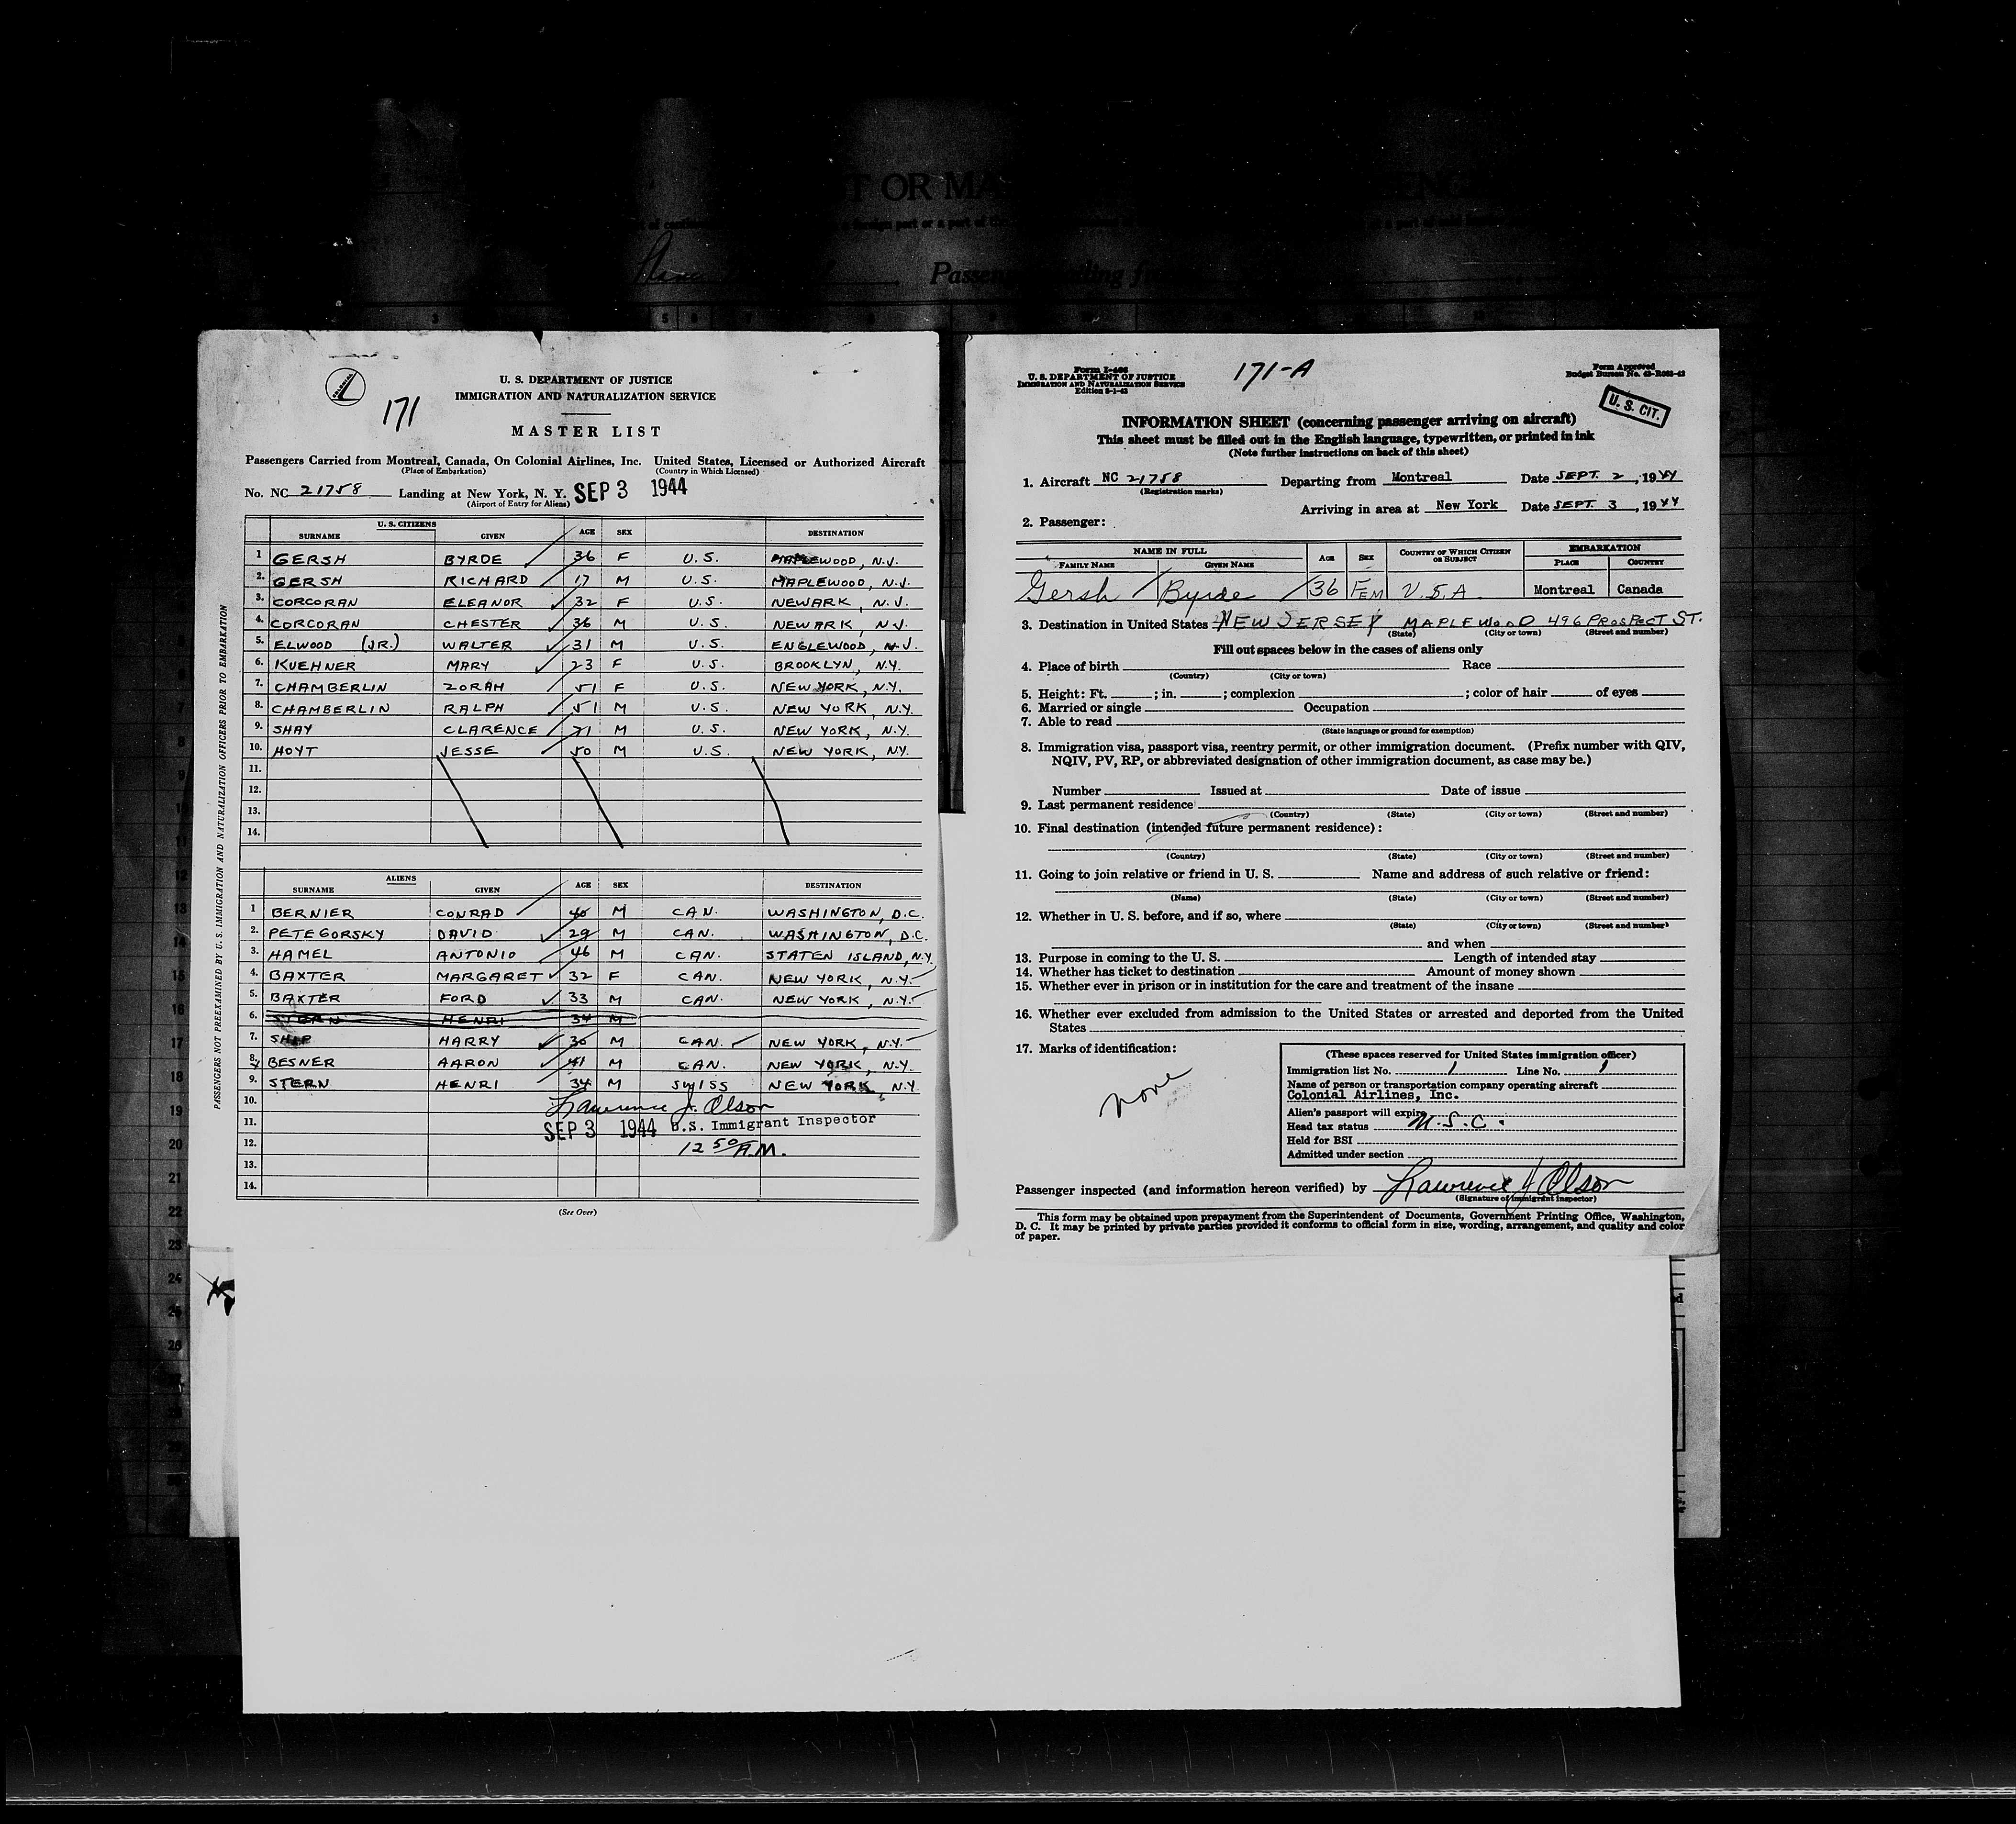 T OR MA
Passen ding fr
COLONIAL
171
U. S. DEPARTMENT OF JUSTICE
IMMIGRATION AND NATURALIZATION SERVICE
MASTER LIST
Passengers Carried from Montreal, Canada, On Colonial Airlines, Inc. United States, Licensed or Authorized Aircraft
(Place of Embarkation) (Country in Which Licensed)
No. NC 21758 Landing at New York, N. Y. SEP 3 1944
(Airport of Entry for Aliens)
U. S. CITIZENS
SURNAME GIVEN AGE SEX DESTINATION
1 GERSH BYRDE 36 F U.S. MAPLEWOOD, N.J.
2. GERSH RICHARD 17 M U.S. MAPLEWOOD, N.J.
3. CORCORAN ELEANOR 32 F U.S. NEWARK, N.J.
4. CORCORAN CHESTER 36 M U.S. NEWARK, N.J.
5. ELWOOD (JR.) WALTER 31 M U.S. ENGLEWOOD, N.J.
6. KUEHNER MARY 23 F U.S. BROOKLYN, N.Y.
7. CHAMBERLIN ZORAH 51 F U.S. NEW YORK, N.Y.
8. CHAMBERLIN RALPH 51 M U.S. NEW YORK, N.Y.
9. SHAY CLARENCE 71 M U.S. NEW YORK, N.Y.
10. HOYT JESSE 50 M U.S. NEW YORK, N.Y.
11.
12.
13.
14.
ALIENS
SURNAME GIVEN AGE SEX DESTINATION
1 BERNIER CONRAD 40 M CAN. WASHINGTON, D.C.
2. PETEGORSKY DAVID 29 M CAN. WASHINGTON, D.C.
3. HAMEL ANTONIO 46 M CAN. STATEN ISLAND, N.Y.
4. BAXTER MARGARET 32 F CAN. NEW YORK, N.Y.
5. BAXTER FORD 33 M CAN. NEW YORK, N.Y.
6. STERN HENRI 34 M
7. SHIP HARRY 30 M CAN. NEW YORK, N.Y.
8. BESNER AARON 41 M CAN. NEW YORK, N.Y.
9. STERN HENRI 34 M SWISS NEW YORK, N.Y.
10. Lawrence J. Olson
11. SEP 3 1944 U.S. Immigrant Inspector
12. 12 50 A.M.
13.
14.
(See Over)
PASSENGERS NOT PREEXAMINED BY U. S. IMMIGRATION AND NATURALIZATION OFFICERS PRIOR TO EMBARKATION
Form I-466
U. S. DEPARTMENT OF JUSTICE
IMMIGRATION AND NATURALIZATION SERVICE
171-A
Form Approved
U. S. CIT.
INFORMATION SHEET (concerning passenger arriving on aircraft)
This sheet must be filled out in the English language, typewritten, or printed in ink
(Note further instructions on back of this sheet)
1. Aircraft NC 21758 Departing from Montreal Date SEPT. 2, 1944
(Registration marks)
Arriving in area at New York Date SEPT. 3, 1944
2. Passenger:
NAME IN FULL AGE SEX COUNTRY OF WHICH CITIZEN OR SUBJECT EMBARKATION
FAMILY NAME GIVEN NAME PLACE COUNTRY
Gersh Byrde 36 FEM U.S.A. Montreal Canada
3. Destination in United States NEW JERSEY MAPLEWOOD 496 PROSPECT ST.
(State) (City or town) (Street and number)
Fill out spaces below in the cases of aliens only
4. Place of birth Race
(Country) (City or town)
5. Height: Ft. ; in. ; complexion ; color of hair of eyes
6. Married or single Occupation
7. Able to read
(State language or ground for exemption)
8. Immigration visa, passport visa, reentry permit, or other immigration document. (Prefix number with QIV,
NQIV, PV, RP, or abbreviated designation of other immigration document, as case may be.)
Number Issued at Date of issue
9. Last permanent residence
(Country) (State) (City or town) (Street and number)
10. Final destination (intended future permanent residence):
(Country) (State) (City or town) (Street and number)
11. Going to join relative or friend in U. S. Name and address of such relative or friend:
(Name) (State) (City or town) (Street and number)
12. Whether in U. S. before, and if so, where
(State) (City or town) (Street and number)
and when
13. Purpose in coming to the U. S. Length of intended stay
14. Whether has ticket to destination Amount of money shown
15. Whether ever in prison or in institution for the care and treatment of the insane
16. Whether ever excluded from admission to the United States or arrested and deported from the United
States
17. Marks of identification:
none
(These spaces reserved for United States immigration officer)
Immigration list No. 1 Line No. 1
Name of person or transportation company operating aircraft
Colonial Airlines, Inc.
Alien's passport will expire
Head tax status U.S.C.
Held for BSI
Admitted under section
Passenger inspected (and information hereon verified) by Lawrence J Olson
(Signature of immigrant inspector)
This form may be obtained upon prepayment from the Superintendent of Documents, Government Printing Office, Washington,
D. C. It may be printed by private parties provided it conforms to official form in size, wording, arrangement, and quality and color
of paper.